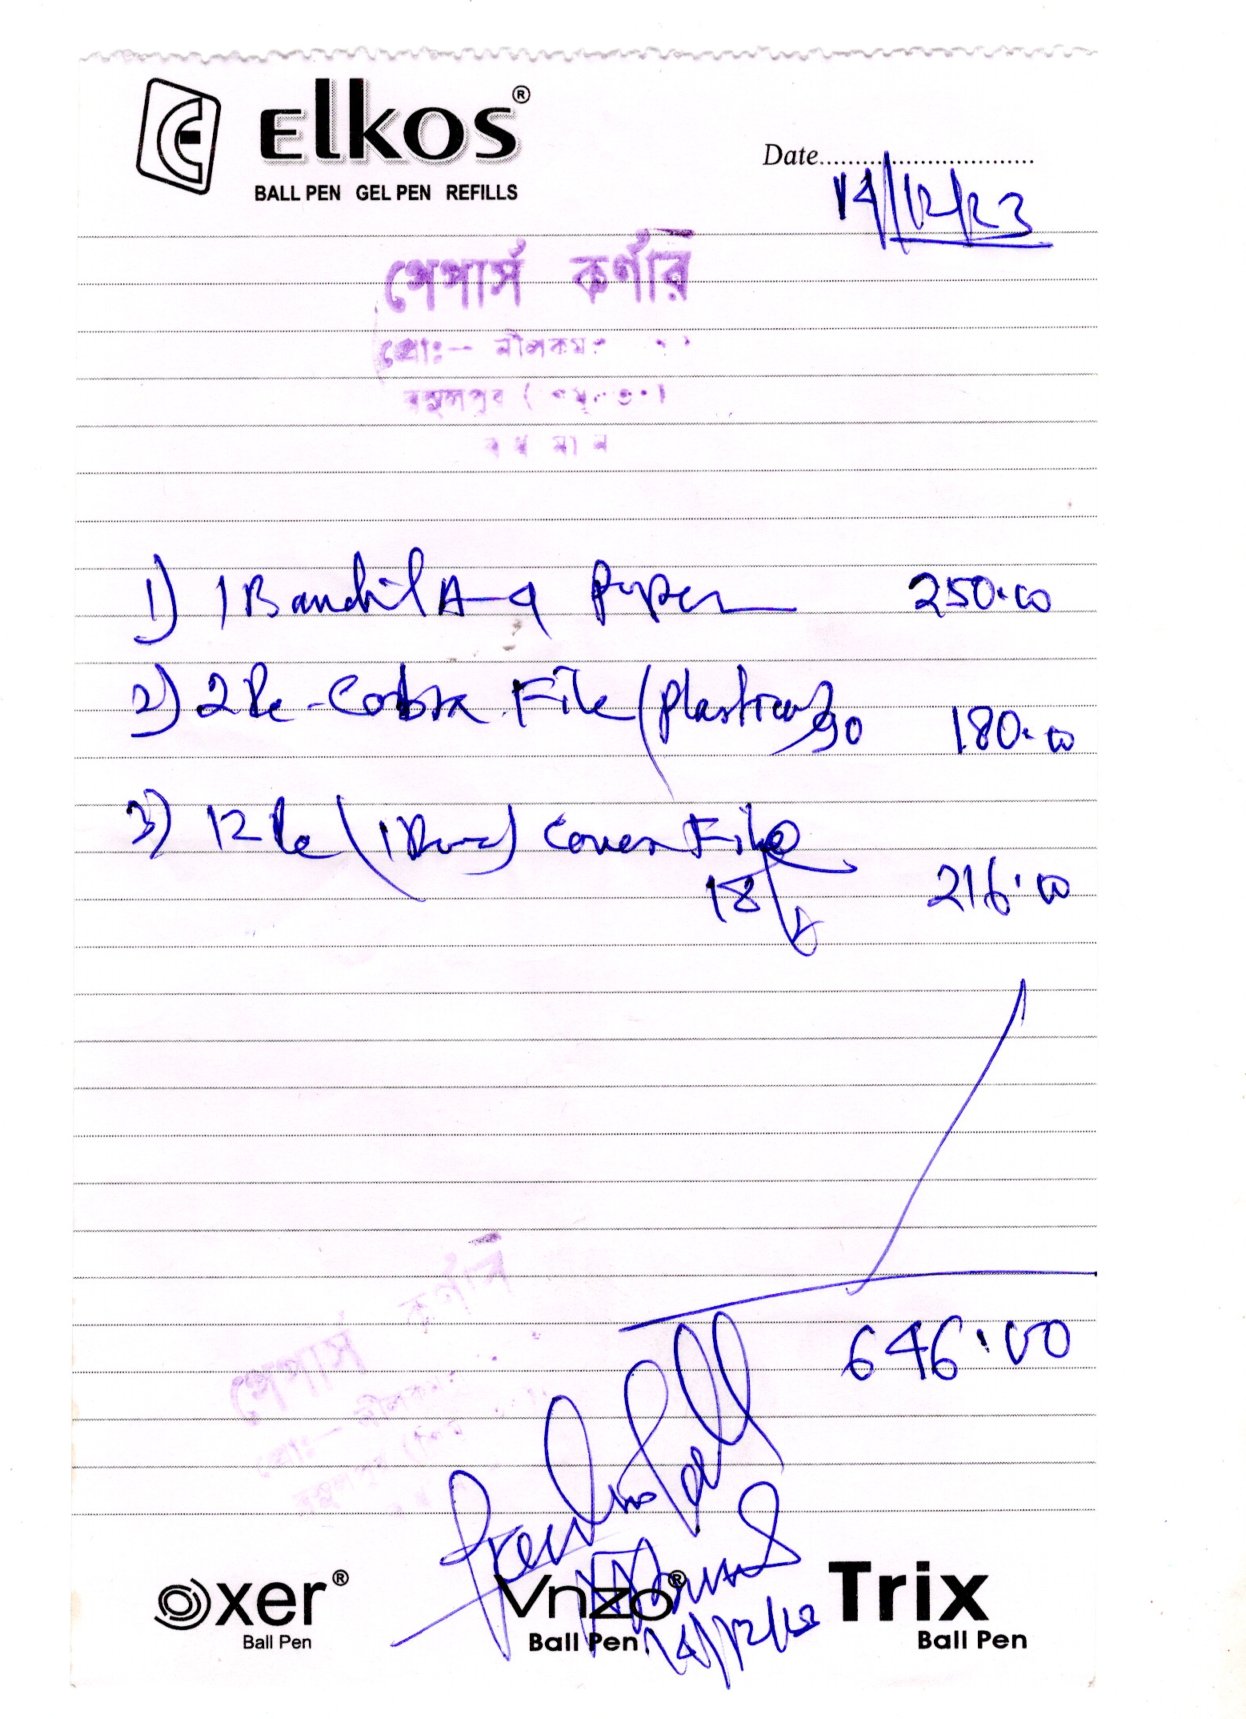 Elkos®
BALL PEN GEL PEN REFILLS
Date..............................
14/12/23
পেপার্স কর্ণার
প্রোঃ--
1) 1 Bandil A-4 Paper 250.00
2) 2 Pc - Cobra File (Plastic) 90 180.00
3) 12 Pc (1 Dozn) Cover File
18/- 216.00
646.00
oxer®
Ball Pen
Vnzo®
Ball Pen
14/12/23
Trix
Ball Pen